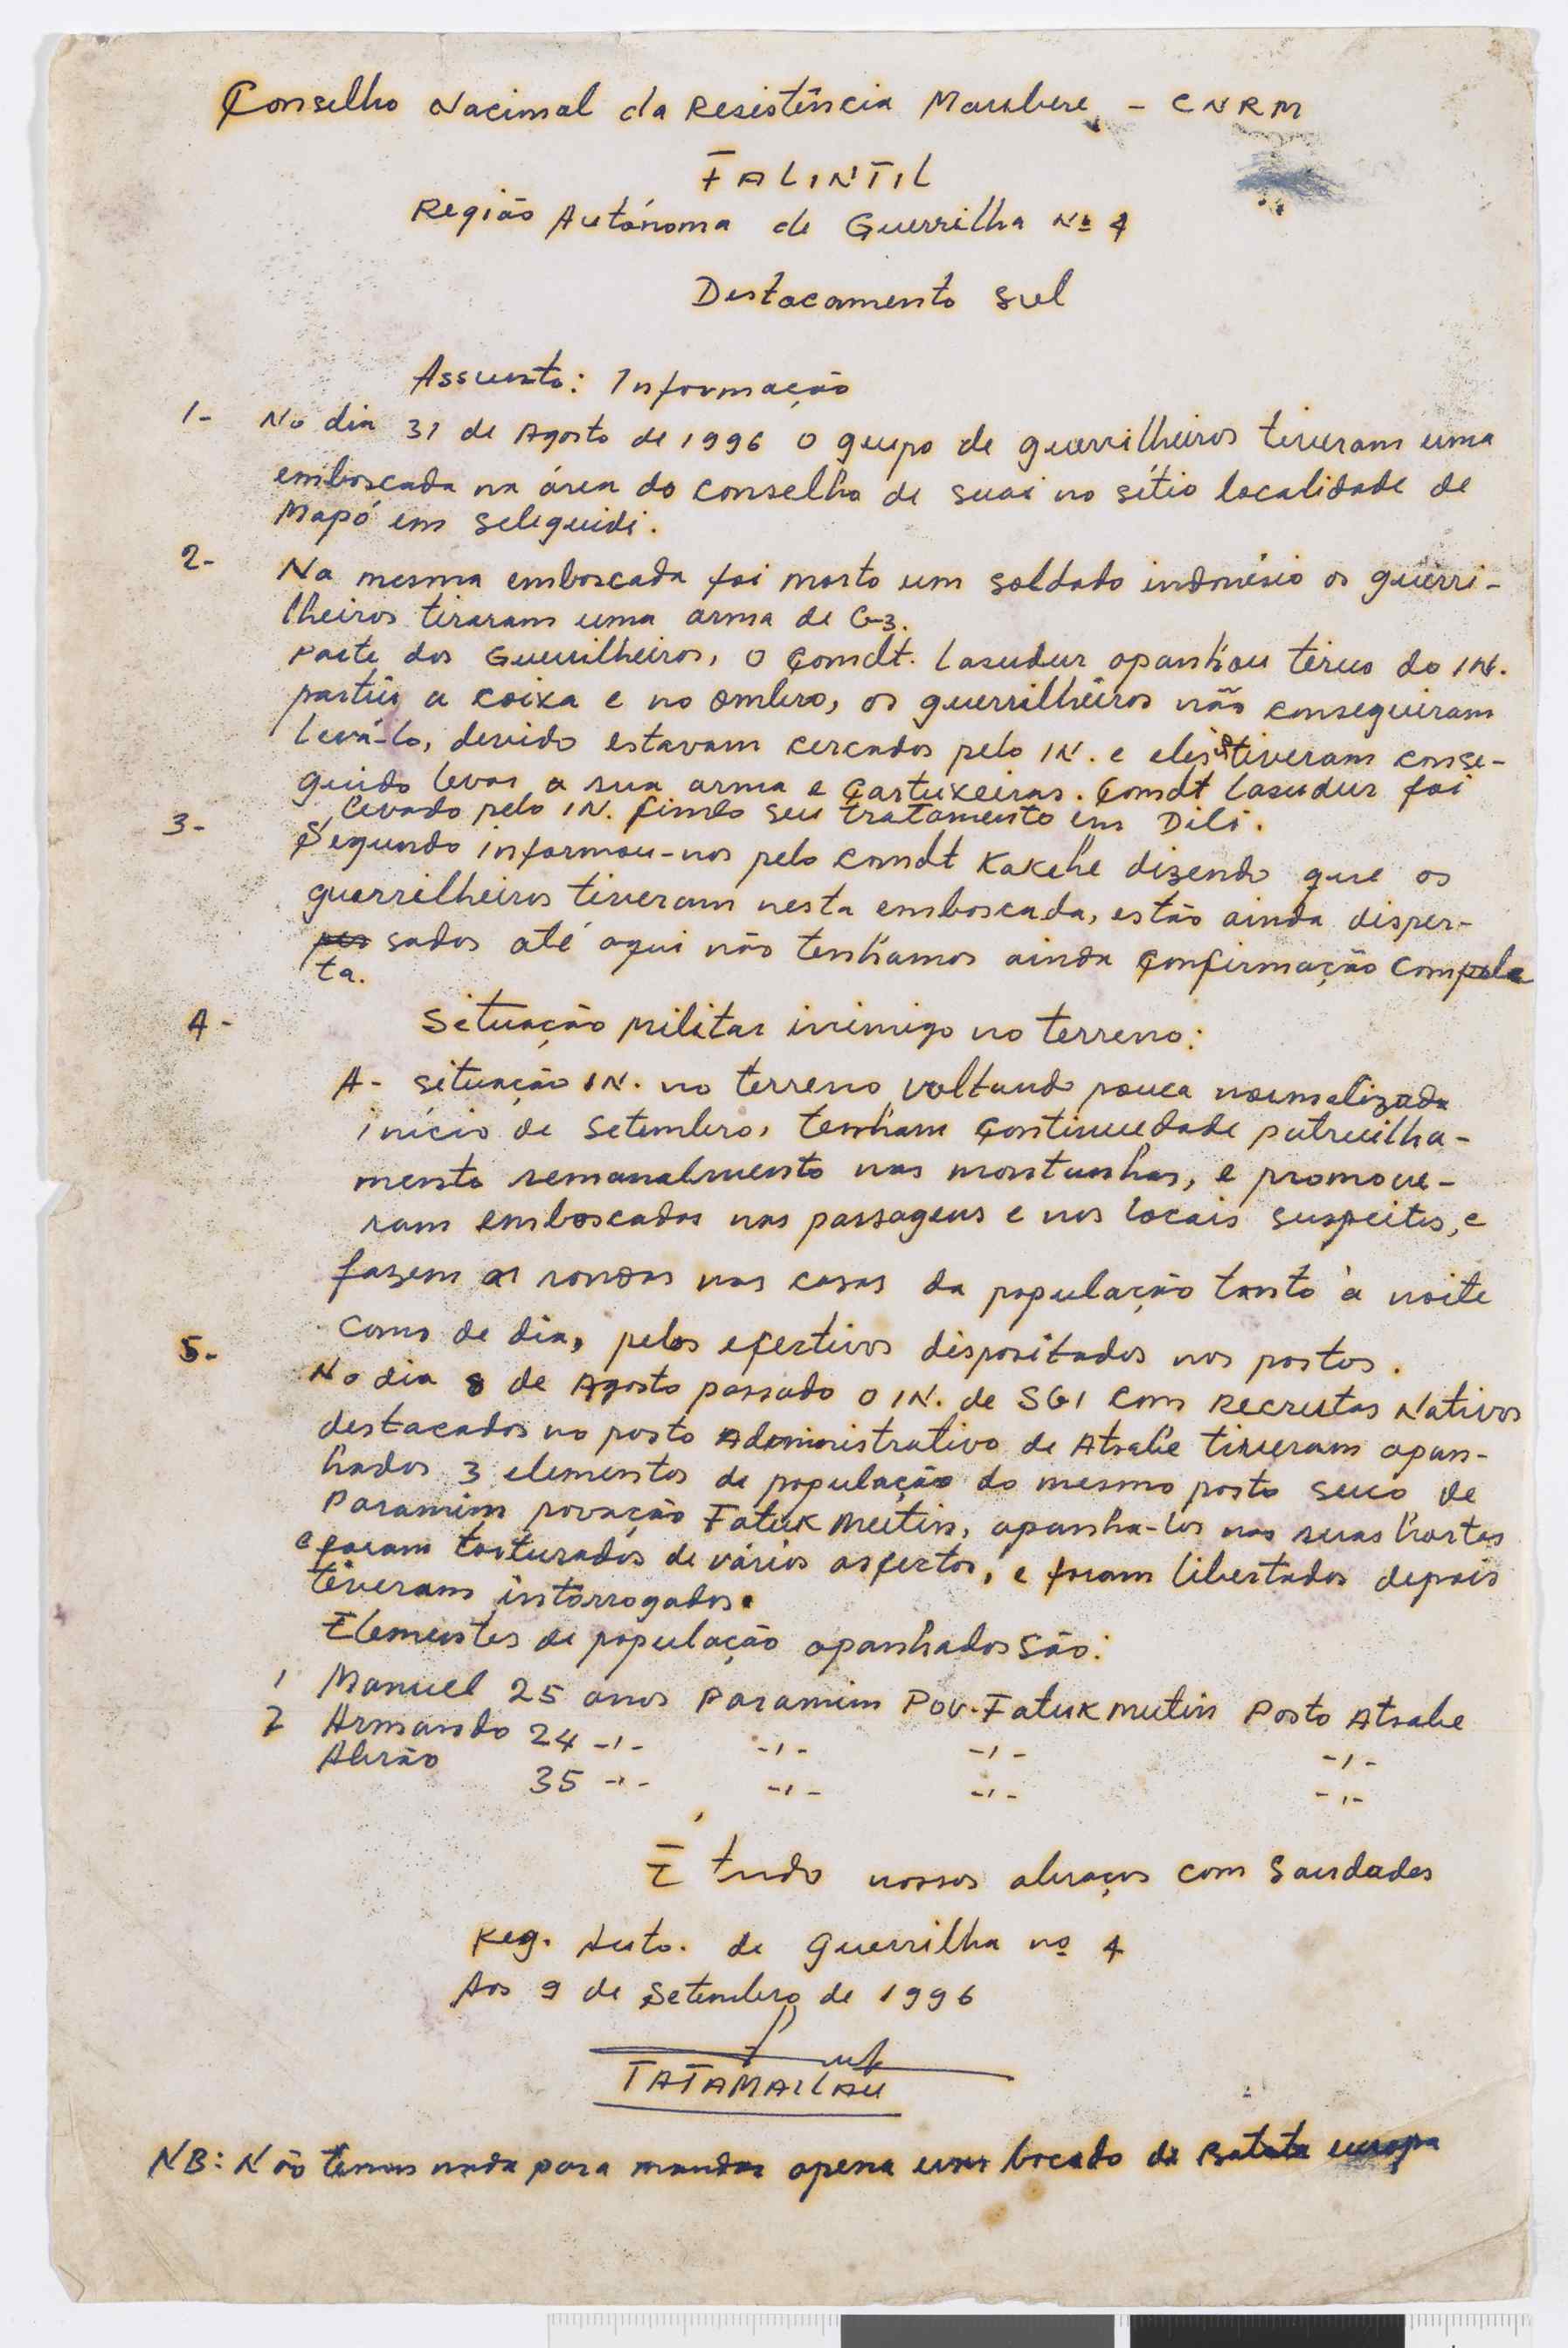 Conselho Nacional da Resistência Maubere - CNRM
FALINTIL
Região Autónoma de Guerrilha Nº 4
Destacamento Sul
Assunto: Informação
1- No dia 31 de Agosto de 1996 o gurpo de guerrilheiros tiveram uma
emboscada na área do conselho de suai no sítio localidade de
Mapó em seleguidi.
2- Na mesma emboscada foi morto um soldado indonésio os guerri-
lheiros tiraram uma arma de G-3.
Parte dos Guerrilheiros, o Comdt. Lasudur apanhou tiros do IN.
partiu a coixa e no ombro, os guerrilheiros não conseguiram
levá-lo, devido estavam cercados pelo IN. e eles tiveram conse-
guido levar a sua arma e Cartuxeiras. Comdt Lasudur foi
levado pelo IN. seu tratamento em Dili.
3- Segundo informou-nos pelo comdt Kakehe dizendo que os
guerrilheiros tiveram nesta emboscada, estão ainda disper-
sados até aqui não tenhamos ainda Confirmação comple
ta.
4- Situação militar inimigo no terreno:
A- situação IN. no terreno voltando pouca normalizada
início de Setembro, tenham Continuedade patruilha-
mento semanalmento nas montanhas, e promove-
ram emboscadas nas passagens e nos locais suspeitos, e
fazem as rondas nas casas da população tanto à noite
como de dia, pelos efectivos dispositados nos postos.
5- No dia 8 de Agosto passado o IN. de SGI com Recrutas Nativos
destacados no posto Administrativo de Atsabe tiveram apan-
hados 3 elementos de população do mesmo posto suco de
Paramim povação Fatuk Mutin, apanha-los nas suas hortas
e foram torturados de vários aspectos, e foram libertados depois
tiveram intorrogados.
Elementos de população apanhados são:
1 Manuel 25 anos Paramim Pov. Fatuk mutin Posto Atsabe
2 Armando 24 -,- -,- -,- -,-
Abrão 35 -,- -,- -,- -,-
É tudo nossos abraços com Saudades
Reg. Auto. de Guerrilha nº 4
Aos 9 de Setembro de 1996
TATAMAILAU
NB: Não temos nada para mandar apena um bocado de Batata europa